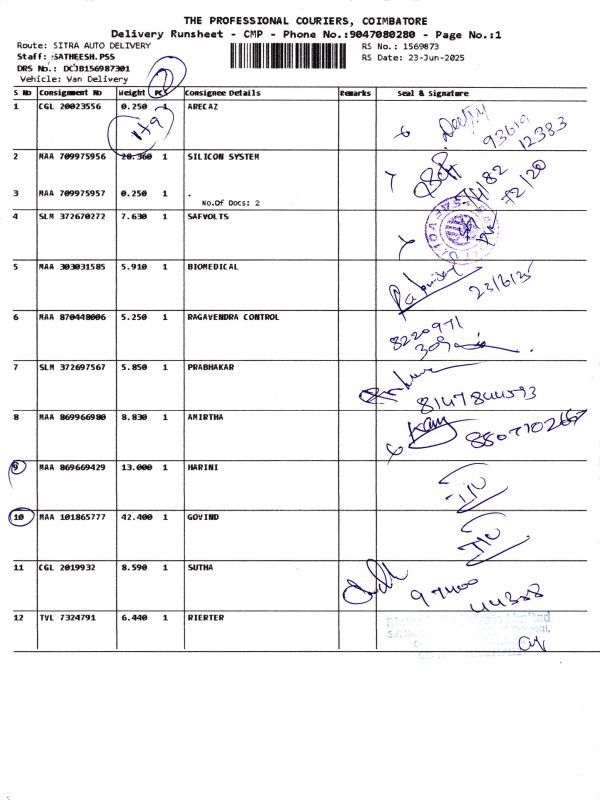 THE PROFESSIONAL COURIERS, COIMBATORE
Delivery Runsheet - CMP - Phone No.:9047080280 - Page No.:1
Route: SITRA AUTO DELIVERY
RS No.: 1569873
Staff: SATHEESH.PSS
RS Date: 23-Jun-2025
DRS No.: DCJB156987301
Vehicle: Van Delivery
2
S No Consignment No Weight PCS Consignee Details Remarks Seal & Signature
1 CGL 20023556 0.250 1 ARECAZ
93619
12383
2 MAA 709975956 20.360 1 SILICON SYSTEM
3 MAA 709975957 0.250 1 .
No.Of Docs: 2
72/20
4 SLM 372670272 7.630 1 SAFVOLTS
5 MAA 303031585 5.910 1 BIOMEDICAL
23/6/25
6 MAA 870448006 5.250 1 RAGAVENDRA CONTROL
8220971
7 SLM 372697567 5.850 1 PRABHAKAR
8147844593
8 MAA 869966980 8.830 1 AMIRTHA
9 MAA 869669429 13.000 1 HARINI
10 MAA 101865777 42.400 1 GOVIND
11 CGL 2019932 8.590 1 SUTHA
97400
44388
12 TVL 7324791 6.440 1 RIERTER